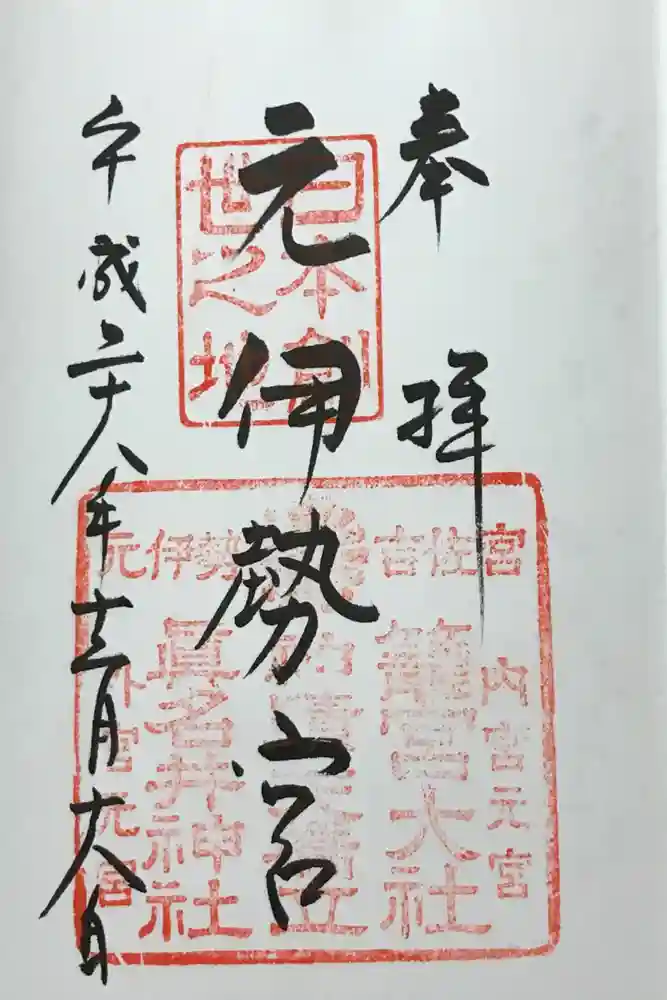 奉拝
元伊勢宮
平成二十八年十二月十八日
日本創
世之地
元伊勢 吉佐宮
内宮元宮
籠宮大社
眞名井神社
外宮元宮